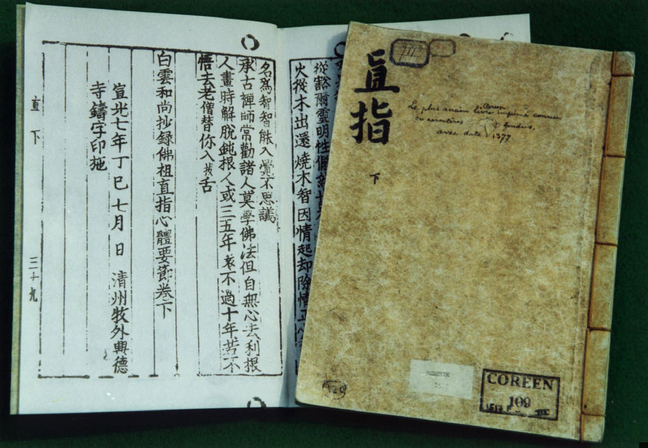 從豁爾靈明性
火從木出還燒木智因情起却除情
名爲智智能入覺不思議
承古禪師常勸諸人莫學佛法但自無心去利根
人晝時解脫鈍根人或三五年遠不過十年若不
悟去老僧替你入拔舌
白雲和尚抄錄佛祖直指心體要節卷下
宣光七年丁巳七月 日 清州牧外興德
寺鑄字印施
直下 三十九
直指
下
Le plus ancien livre coréen imprimé connu
en caractères fondus,
avec date = 1377
COREEN
109